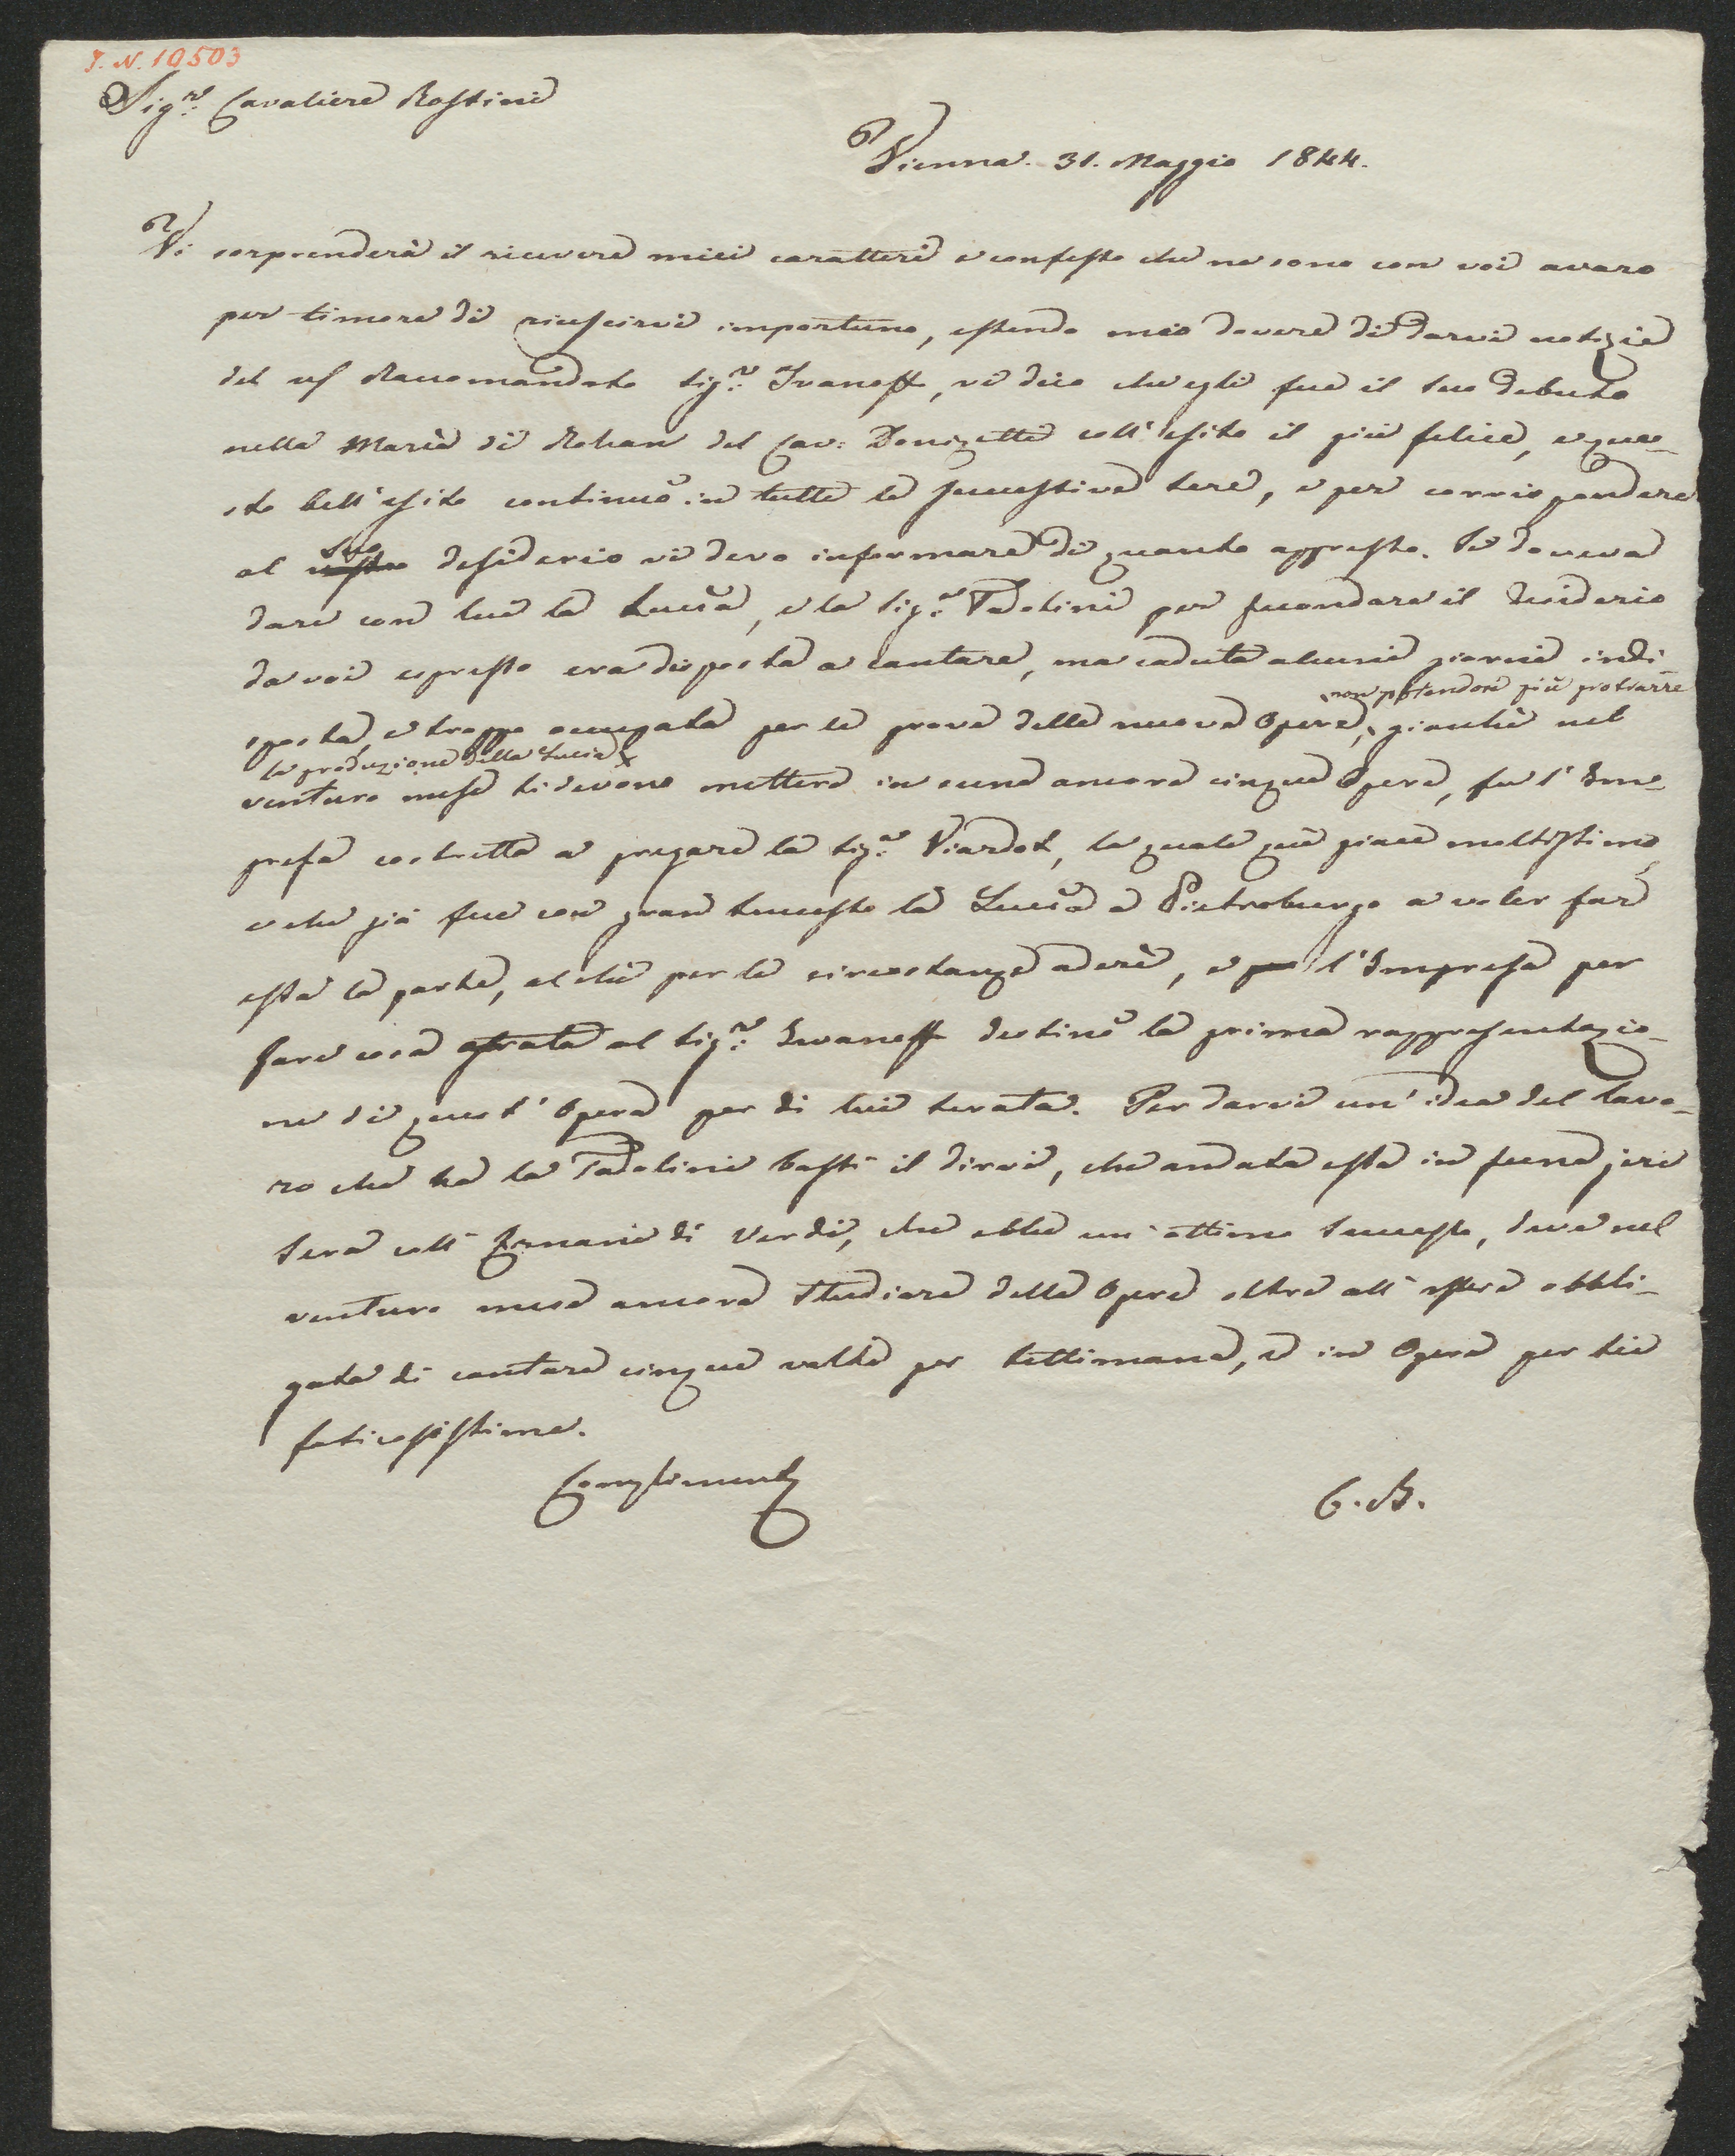 I. N. 19503
Sig.r Cavaliere Rossini
Vienna. 31. Maggio 1844.
Vi sorprenderà il ricevere miei caratteri e confesso che ne sono con voi avaro
per timore di riuscirvi importuno, essendo mio dovere di darvi notizie
del vs Raccomandato Sig.r Ivanoff, vi dico che egli fece il suo debutto
nella Maria di Rohan del Cav: Donizetti coll'esito il più felice, e que-
sto bell'esito continuò in tutte le successive sere, e per corrispondere
suo
al vostro desiderio vi devo informare di quanto appresso. Si doveva
dare con lui la Lucia, e la Sig.a Tadolini per secondare il desiderio
da voi espresso era disposta a cantare, ma caduta alcuni giorni indi-
non potendosi più protrarre
sposta, e troppo occupata per le prove delle nuove Opere, giacchè nel
la produzione della Lucia x
venturo mese si devono mettere in scena ancora cinque Opere, fu l'Im-
presa costretta a pregare la Sig.a Viardot, la quale quì piace moltissimo,
e che già fece con gran successo la Lucia a Pietroburgo a voler far
essa la parte, al chè per le circostanze aderì, e l'Impresa per
fare cosa grata al Sig.r Ivanoff destinò la prima rappresentazio-
ne di quest'Opera per di lui serata. Per darvi un'idea del lavo-
ro che ha la Tadolini basti il dirvi, che andata essa in scena jeri
sera coll'Ernani di Verdi, che ebbe un'ottimo successo, deve nel
venturo mese ancora studiare delle Opere oltre all'essere obbli-
gata di cantare cinque volte per settimana, e in Opere per lei
faticosissime.
Complimenti
C. B.